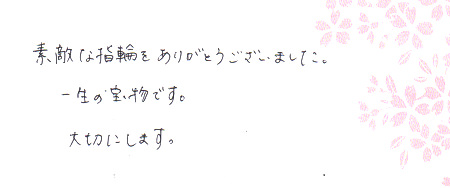 素敵な指輪をありがとうございました。
一生の宝物です。
大切にします。